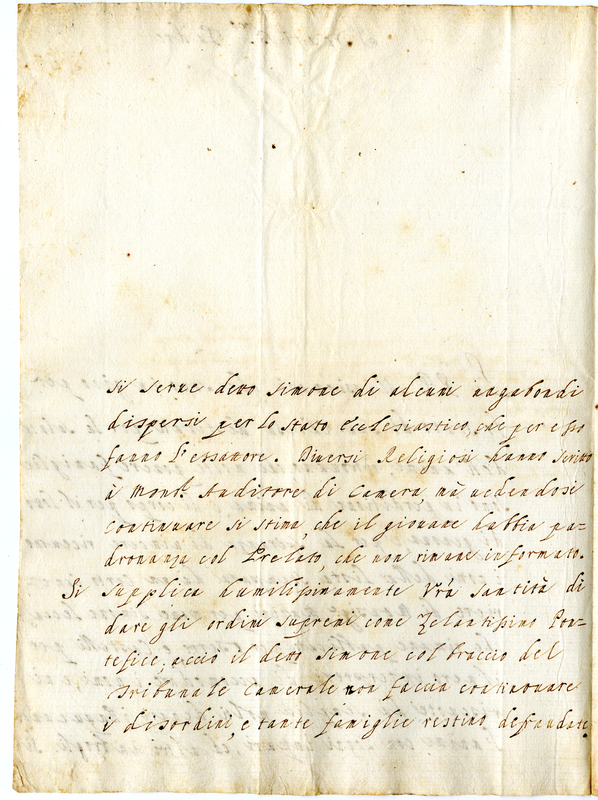 Si serue detto Simone di alcuni uagabondi
dispersi per lo stato Ecclesiastico, che per esso
fanno l'essattore. Diuersi Religiosi hanno scritto
à Mons.r Auditore di Camera, mà uedendosi
continuare si stima, che il giouane habbia pa-
dronanza col Prelato, che non rimane informato.
Si supplica humilissimamente Vrã Santità di
dare gli ordini supremi come Zelantissimo Pon-
tefice, acciò il detto Simone col braccio del
Tribunale Camerale non faccia continouare
i disordini, e tante famiglie restino defraudate.